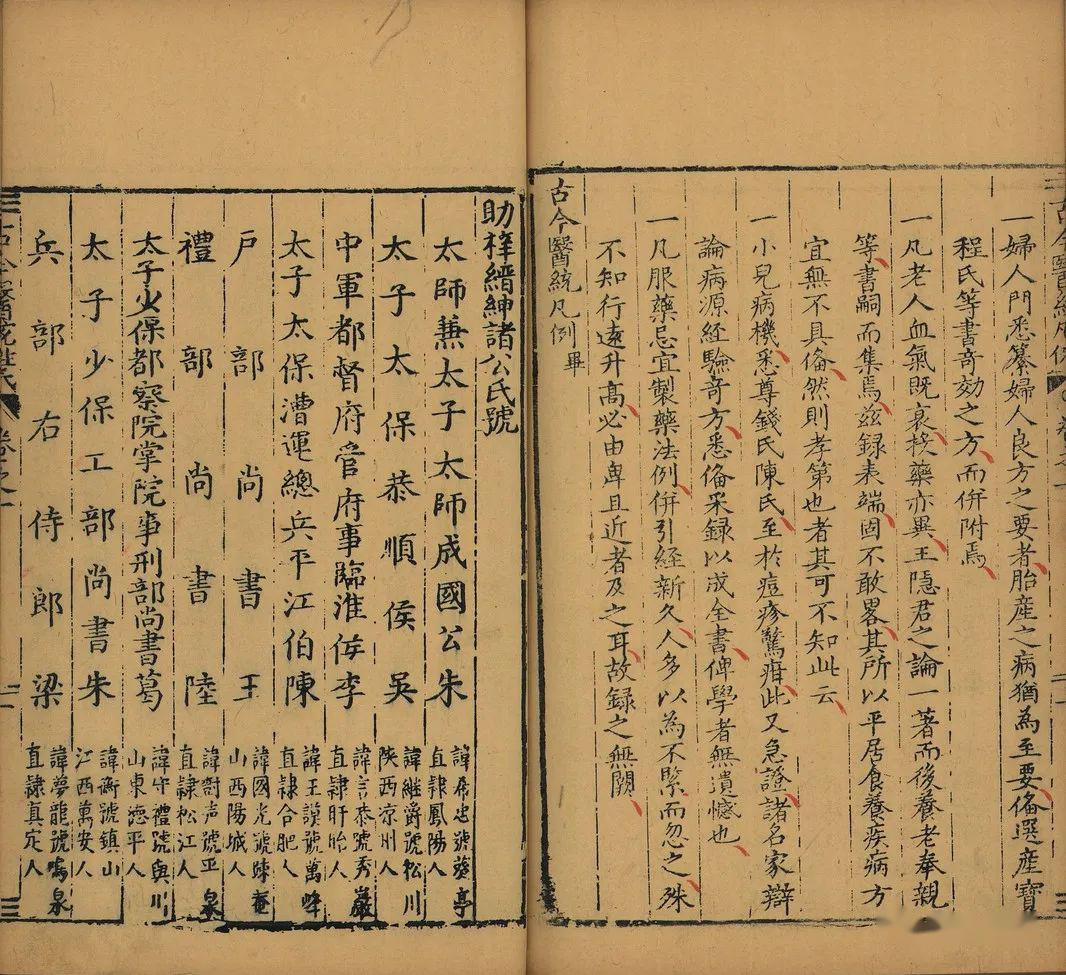 一婦人門悉纂婦人良方之要者胎產之病猶為至要俻選產寶
程氏等書奇効之方而併附焉
一凡老人血氣既衰稟藥亦異王隱君之論一著而後養老奉親
等書嗣而集焉兹録表端固不敢畧其所以平居食養疾病方
宜無不具俻然則孝第也者其可不知此云
一小兒病機悉尊錢氏陳氏至於痘疹驚疳此又急證諸名家辯
論病源經驗奇方悉俻采録以成全書俾學者無遺憾也
一凡服藥忌宜製藥法例併引経新久人多以為不緊而忽之殊
不知行遠升髙必由卑且近者及之耳故録之無闕
古今醫統凡例畢
助梓縉紳諸公氏號
太師兼太子太師成國公朱 諱希忠號葵亭 直隸鳳陽人
太子太保恭順侯吳 諱繼爵號松川 陝西凉州人
中軍都督府管府事臨淮侯李 諱言恭號秀巖 直隸盱眙人
太子太保漕運總兵平江伯陳 諱王謨號萬峰 直隸合肥人
戶部尚書王 諱國光號疎菴 山西陽城人
禮部尚書陸 諱樹声號平泉 直隸松江人
太子少保都察院掌院事刑部尚書葛 諱守禮號與川 山東德平人
太子少保工部尚書朱 諱衡號鎮山 江西萬安人
兵部右侍郎梁 諱夢龍號鳴泉 直隸真定人